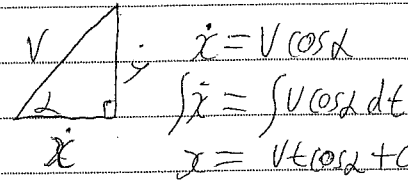 V
ẏ
α
ẋ
ẋ = V cos α
∫ẋ = ∫V cos α dt
x = Vt cos α + C